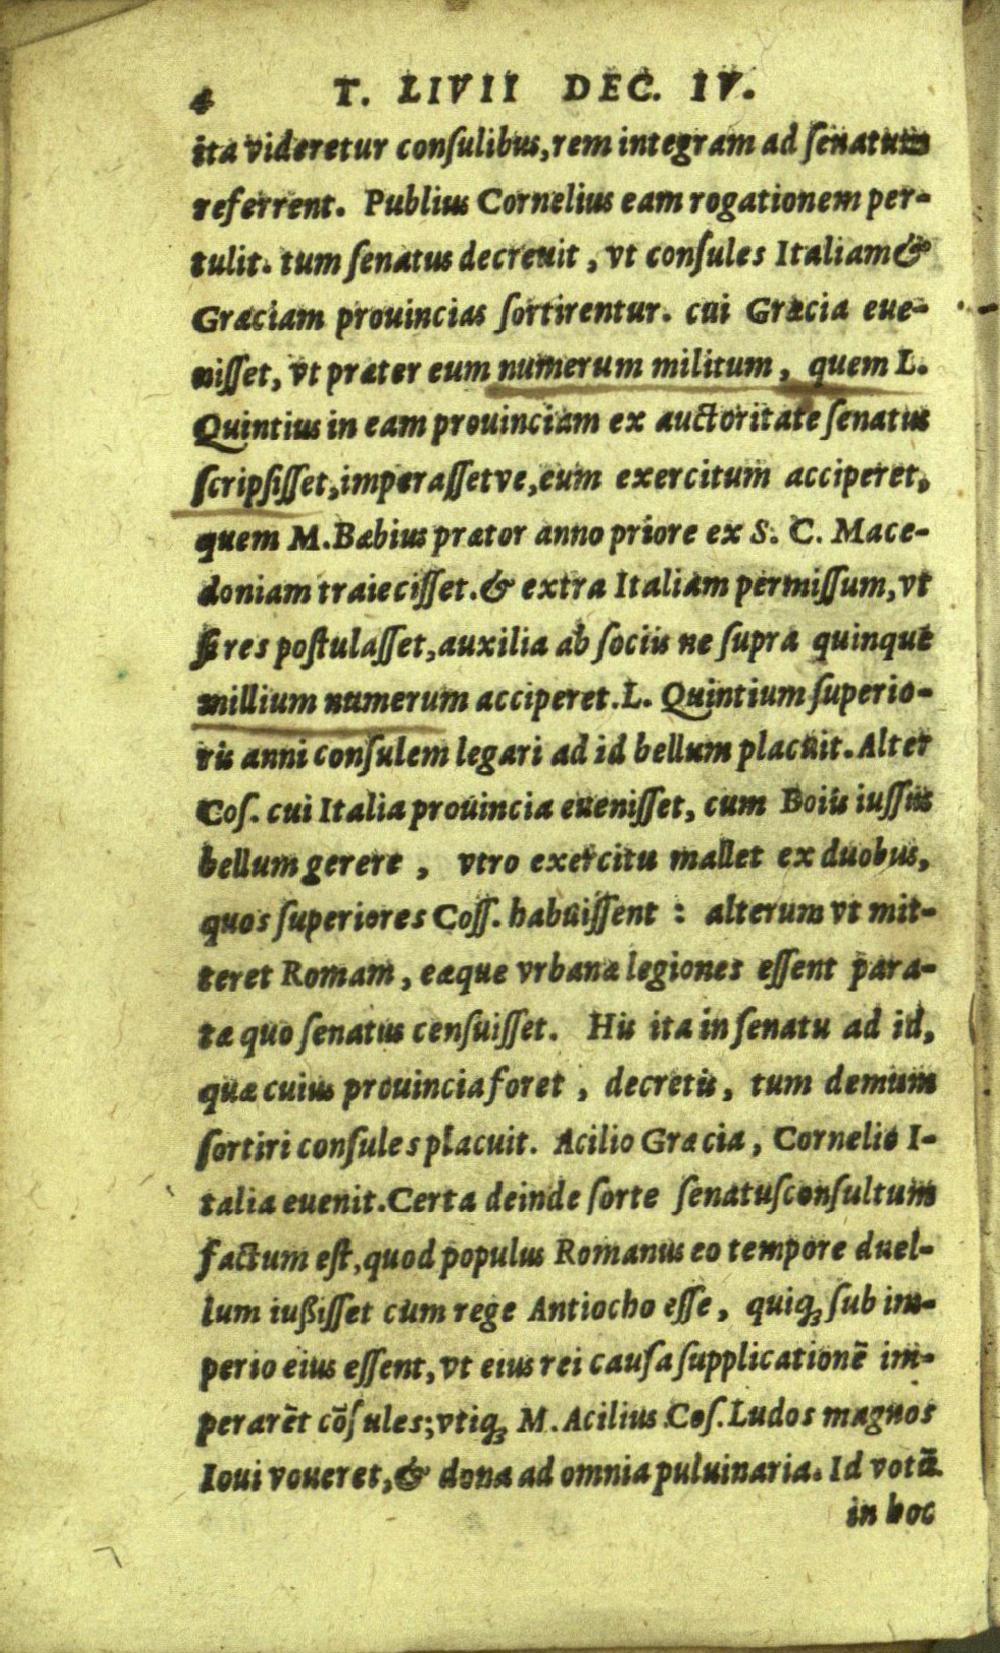 4 T. LIVII DEC. IV.
ita videretur conſulibus, rem integram ad ſenatum
referrent. Publius Cornelius eam rogationem per-
tulit. tum ſenatus decreuit, vt conſules Italiam &
Græciam prouincias ſortirentur. cui Græcia eue-
niſſet, vt præter eum numerum militum, quem L.
Quintius in eam prouinciam ex auctoritate ſenatus
ſcripſiſſet, imperaſſetve, eum exercitum acciperet,
quem M. Bæbius prætor anno priore ex S. C. Mace-
doniam traieciſſet. & extra Italiam permiſſum, vt
ſi res poſtulaſſet, auxilia ab ſociis ne ſupra quinque
millium numerum acciperet. L. Quintium ſuperio-
ris anni conſulem legari ad id bellum placuit. Alter
Coſ. cui Italia prouincia eueniſſet, cum Boiis iuſſus
bellum gerere, vtro exercitu mallet ex duobus,
quos ſuperiores Coſſ. habuiſſent: alterum vt mit-
teret Romam, eæque vrbanæ legiones eſſent para-
tæ quo ſenatus cenſuiſſet. His ita in ſenatu ad id,
quæ cuius prouincia foret, decretis, tum demum
ſortiri conſules placuit. Acilio Græcia, Cornelio I-
talia euenit. Certa deinde ſorte ſenatuſconſultum
factum eſt, quod populus Romanus eo tempore duel-
lum iußiſſet cum rege Antiocho eſſe, quiq; ſub im-
perio eius eſſent, vt eius rei cauſa ſupplicationē im-
perarēt cōſules; vtiq; M. Acilius Coſ. Ludos magnos
Ioui voueret, & dona ad omnia puluinaria. Id votū
in hoc